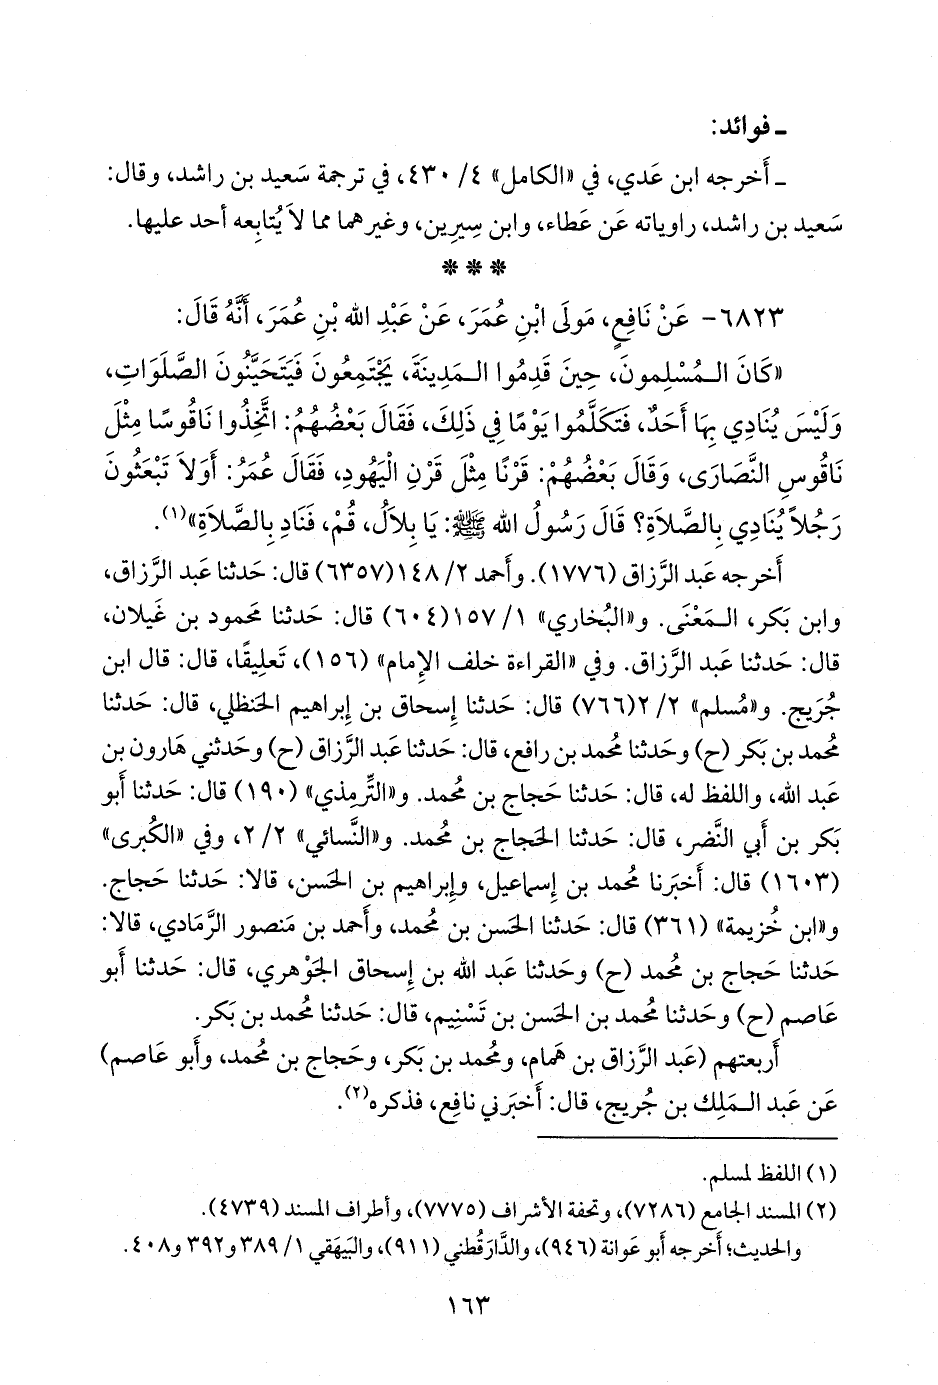 ـ فوائد:
ـ أَخرجه ابن عَدي، في «الكامل» ٤/ ٤٣٠، في ترجمة سَعيد بن راشد، وقال:
سَعيد بن راشد، راوياته عَن عَطاء، وابن سِيرِين، وغيرهما مما لاَ يُتابِعه أحد عليها.
***
٦٨٢٣- عَنْ نَافِعٍ، مَولَى ابْنِ عُمَرَ، عَنْ عَبْدِ الله بْنِ عُمَرَ، أَنَّهُ قَالَ:
«كَانَ الـمُسْلِمونَ، حِينَ قَدِمُوا الـمَدِينَةَ، يَجْتَمِعُونَ فَيَتَحَيَّنُونَ الصَّلَوَاتِ،
وَلَيْسَ يُنَادِي بِهَا أَحَدٌ، فَتَكَلَّمُوا يَوْمًا فِي ذَلِكَ، فَقَالَ بَعْضُهُمُ: اتَّخِذُوا نَاقُوسًا مِثْلَ
نَاقُوسِ النَّصَارَى، وَقَالَ بَعْضُهُمْ: قَرْنًا مِثْلَ قَرْنِ الْيَهُودِ، فَقَالَ عُمَرُ: أَوَلاَ تَبْعَثُونَ
رَجُلاً يُنَادِي بِالصَّلاَةِ؟ قَالَ رَسُولُ الله ﷺ: يَا بِلاَلُ، قُمْ، فَنَادِ بِالصَّلاَةِ»(١).
أَخرجه عَبد الرَّزاق (١٧٧٦). وأَحمد ٢/ ١٤٨(٦٣٥٧) قال: حَدثنا عَبد الرَّزاق،
وابن بَكر، الـمَعْنَى. و«البُخاري» ١/ ١٥٧(٦٠٤) قال: حَدثنا محمود بن غَيلان،
قال: حَدثنا عَبد الرَّزاق. وفي «القراءة خلف الإمام» (١٥٦)، تَعلِيقًا، قال: قال ابن
جُرَيج. و«مُسلم» ٢/ ٢(٧٦٦) قال: حَدثنا إِسحاق بن إِبراهيم الحَنظلي، قال: حَدثنا
مُحمد بن بَكر (ح) وحَدثنا مُحمد بن رافع، قال: حَدثنا عَبد الرَّزاق (ح) وحَدثني هَارون بن
عَبد الله، واللفظ له، قال: حَدثنا حَجاج بن مُحمد. و«التِّرمِذي» (١٩٠) قال: حَدثنا أَبو
بَكر بن أَبي النَّضر، قال: حَدثنا الحَجاج بن مُحمد. و«النَّسائي» ٢/ ٢، وفي «الكُبرى»
(١٦٠٣) قال: أَخبَرنا مُحمد بن إِسماعيل، وإِبراهيم بن الحَسن، قالا: حَدثنا حَجاج.
و«ابن خُزيمة» (٣٦١) قال: حَدثنا الحَسن بن مُحمد، وأَحمد بن مَنصور الرَّمادي، قالا:
حَدثنا حَجاج بن مُحمد (ح) وحَدثنا عَبد الله بن إِسحاق الجَوْهري، قال: حَدثنا أَبو
عَاصم (ح) وحَدثنا مُحمد بن الحَسن بن تَسْنِيم، قال: حَدثنا مُحمد بن بَكر.
أَربعتهم (عَبد الرَّزاق بن هَمام، ومُحمد بن بَكر، وحَجاج بن مُحمد، وأَبو عَاصم)
عَن عَبد الـمَلِك بن جُريج، قال: أَخبَرني نافِع، فذكره(٢).
(١) اللفظ لمسلم.
(٢) المسند الجامع (٧٢٨٦)، وتحفة الأشراف (٧٧٧٥)، وأطراف المسند (٤٧٣٩).
والحديث؛ أَخرجه أَبو عَوانة (٩٤٦)، والدَّارَقُطني (٩١١)، والبَيهَقي ١/ ٣٨٩ و٣٩٢ و٤٠٨.
١٦٣